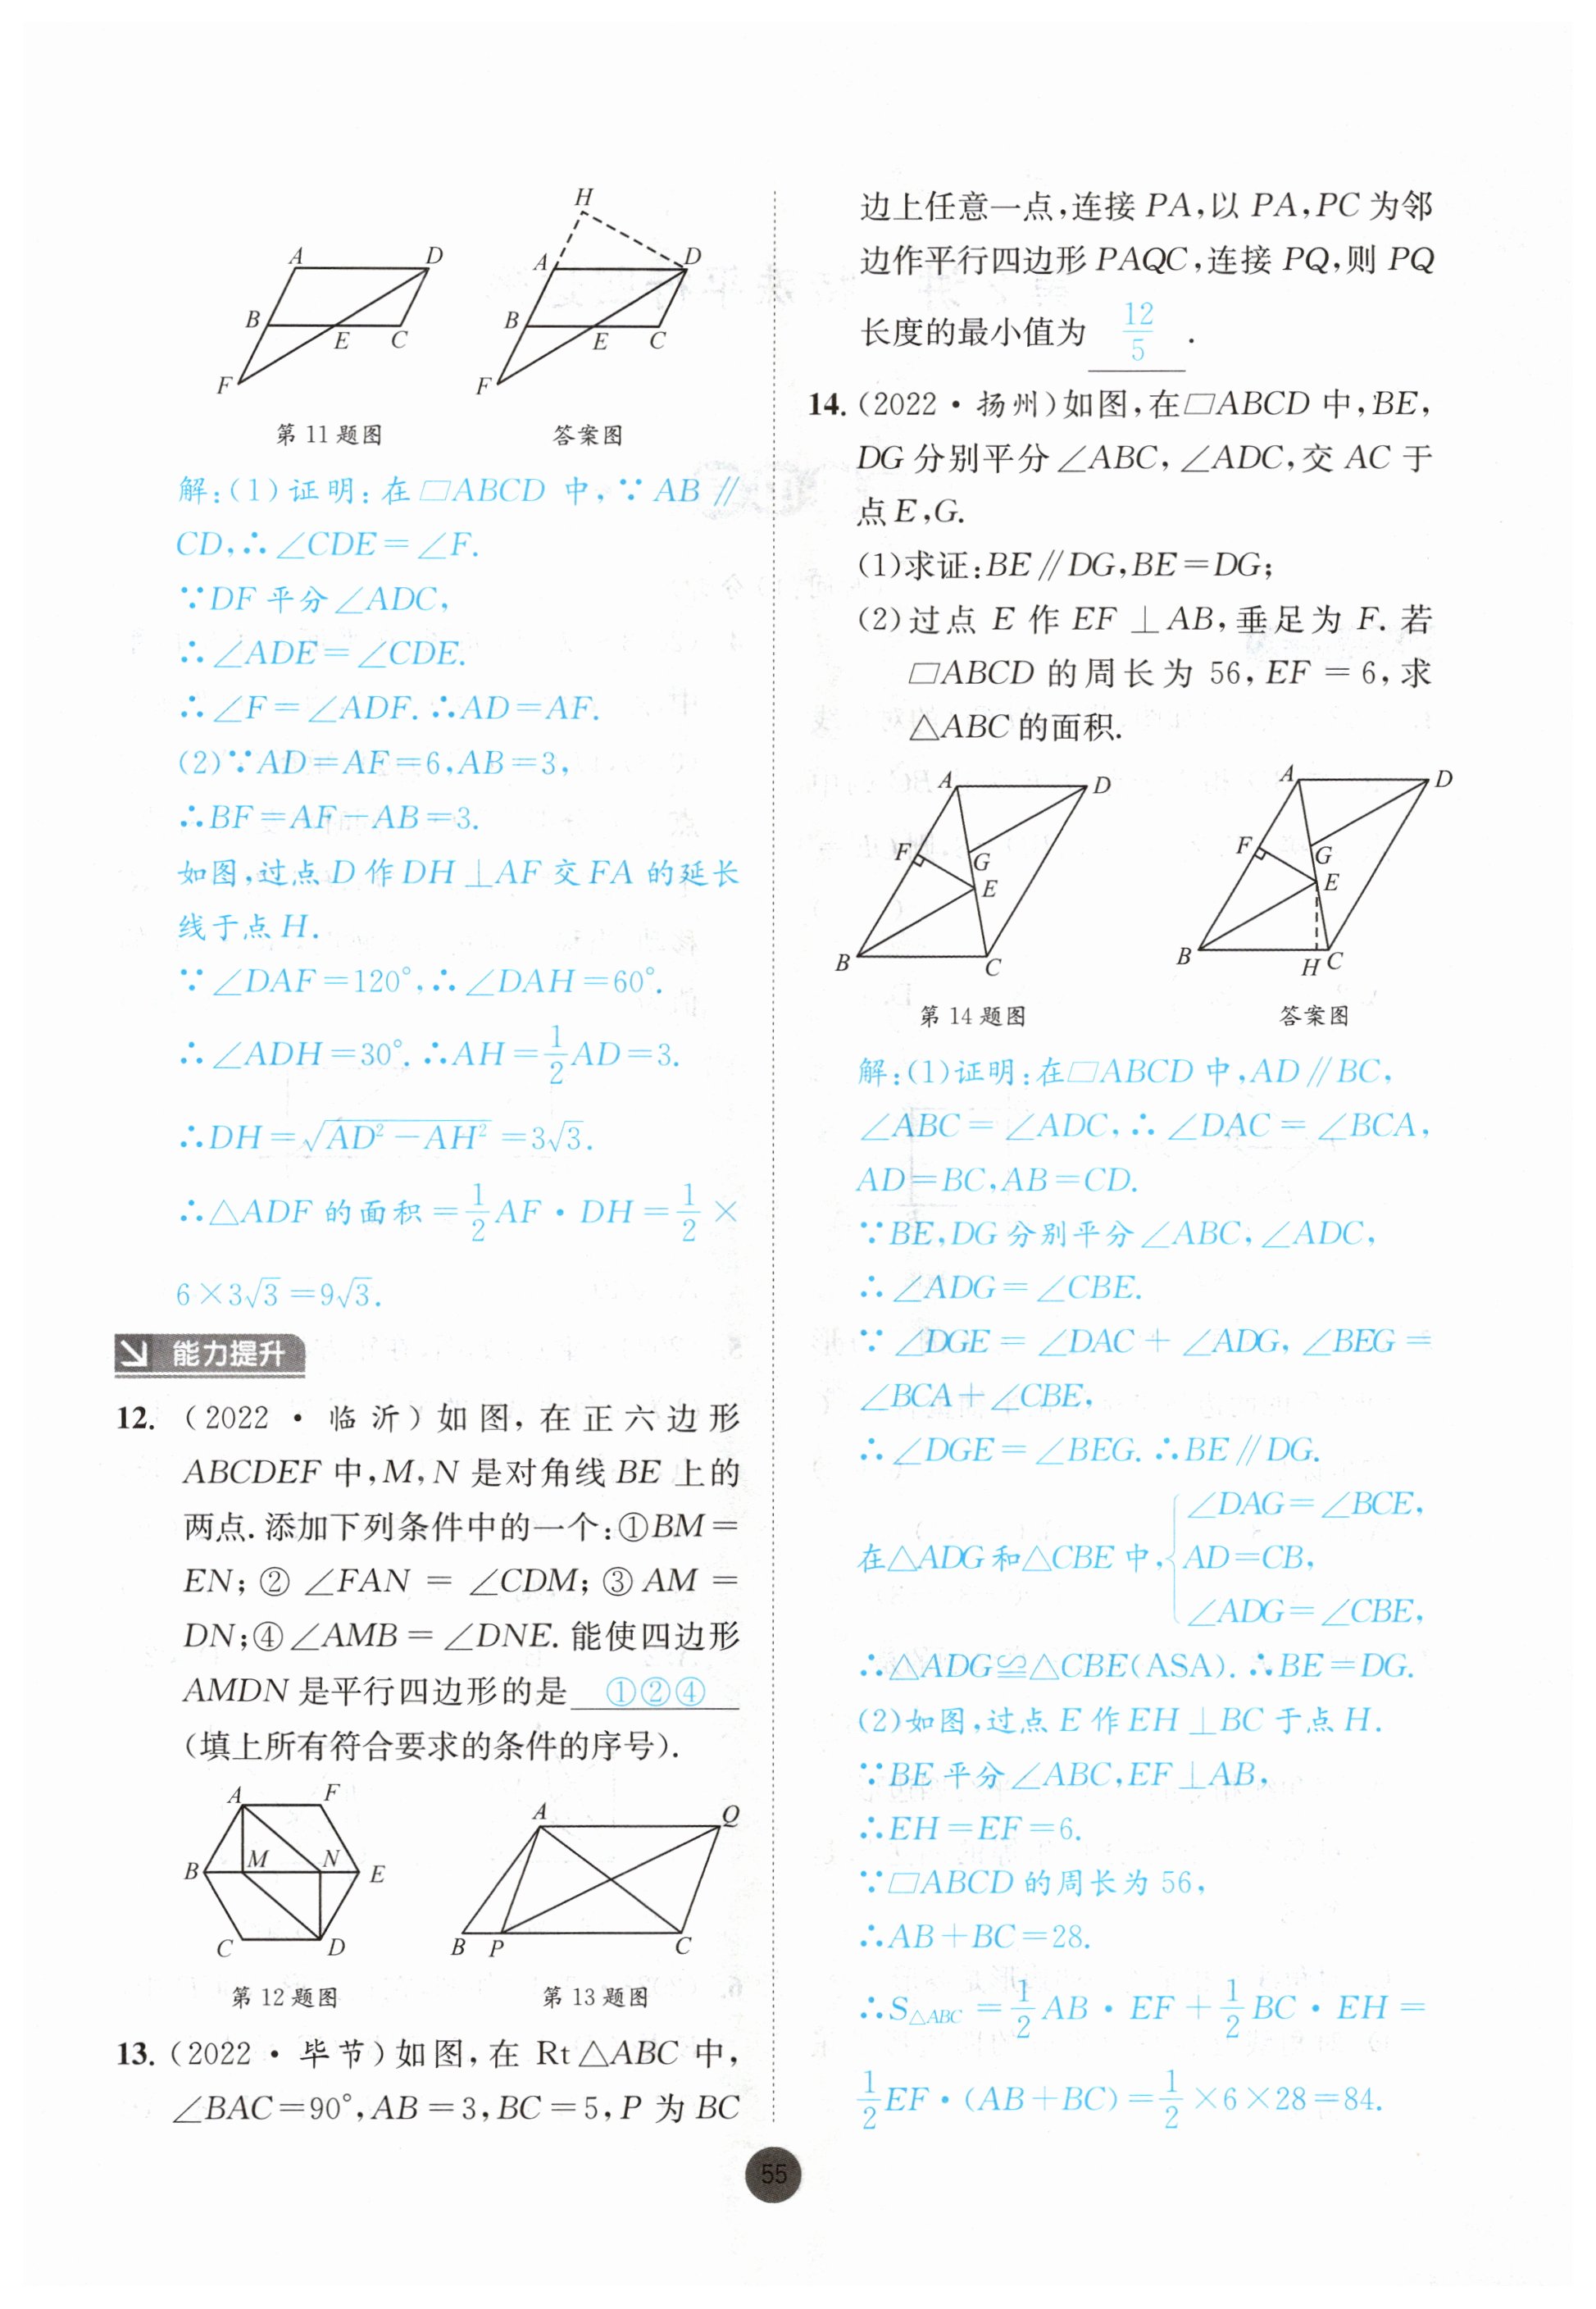 H
A
D
B
E
C
F
A
D
B
E
C
F
第11题图
答案图
解:(1)证明:在▱ABCD 中,∵AB∥
CD,∴∠CDE=∠F.
∵DF 平分∠ADC,
∴∠ADE=∠CDE.
∴∠F=∠ADF.∴AD=AF.
(2)∵AD=AF=6,AB=3,
∴BF=AF-AB=3.
如图,过点D作DH⊥AF交FA的延长
线于点H.
∵∠DAF=120°,∴∠DAH=60°.
∴∠ADH=30°.∴AH=1/2AD=3.
∴DH=√(AD²-AH²)=3√3.
∴△ADF 的面积=1/2AF·DH=1/2×
6×3√3=9√3.
能力提升
12.(2022·临沂)如图,在正六边形
ABCDEF中,M,N是对角线BE上的
两点.添加下列条件中的一个:①BM=
EN;②∠FAN=∠CDM;③AM=
DN;④∠AMB=∠DNE.能使四边形
AMDN是平行四边形的是 ①②④
(填上所有符合要求的条件的序号).
A
F
B
M
N
E
C
D
A
Q
B
P
C
第12题图
第13题图
13.(2022·毕节)如图,在 Rt△ABC 中,
∠BAC=90°,AB=3,BC=5,P 为 BC
边上任意一点,连接PA,以PA,PC为邻
边作平行四边形PAQC,连接PQ,则PQ
长度的最小值为 12/5 .
14.(2022·扬州)如图,在▱ABCD中,BE,
DG分别平分∠ABC,∠ADC,交AC于
点E,G.
(1)求证:BE∥DG,BE=DG;
(2)过点E作EF⊥AB,垂足为F.若
▱ABCD的周长为56,EF=6,求
△ABC的面积.
A
D
F
G
E
B
C
A
D
F
G
E
B
H
C
第14题图
答案图
解:(1)证明:在▱ABCD中,AD∥BC,
∠ABC=∠ADC,∴∠DAC=∠BCA,
AD=BC,AB=CD.
∵BE,DG分别平分∠ABC,∠ADC,
∴∠ADG=∠CBE.
∵∠DGE=∠DAC+∠ADG,∠BEG=
∠BCA+∠CBE,
∴∠DGE=∠BEG.∴BE∥DG.
∠DAG=∠BCE,
在△ADG和△CBE中,{AD=CB,
∠ADG=∠CBE,
∴△ADG≌△CBE(ASA).∴BE=DG.
(2)如图,过点E作EH⊥BC于点H.
∵BE平分∠ABC,EF⊥AB,
∴EH=EF=6.
∵▱ABCD的周长为56,
∴AB+BC=28.
∴S△ABC=1/2AB·EF+1/2BC·EH=
1/2EF·(AB+BC)=1/2×6×28=84.
55